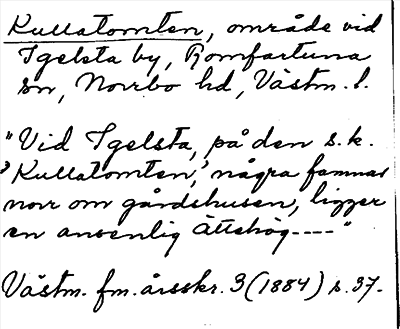 Kullatomten, område vid
Igelsta by, Romfartuna
sn, Norrbo hd, Västm. l.
"Vid Igelsta, på den s.k.
'Kullatomten', några famnar
norr om gårdshusen, ligger
en ansenlig Ättehög----"
Västm. fm. årsskr. 3 (1884) s. 37.